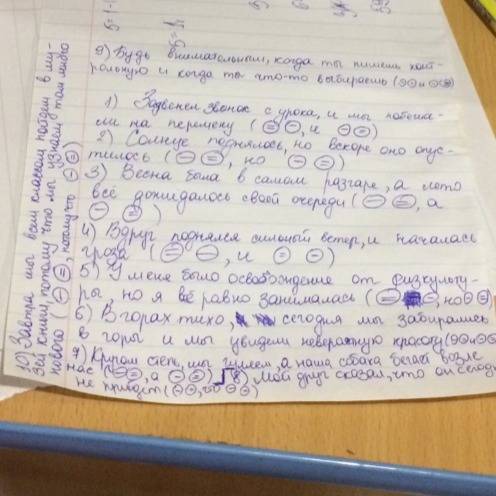 9) Будь внимательным, когда ты пишешь конт-
рольную и когда ты что-то выбираешь (
1) Зазвенел звонок с урока, и мы побежа-
ли на перемену (⊜ ⊖, и ⊖ ⊖)
2) Солнце поднялось, но вскоре оно опус-
тилось (⊖ ⊜, но ⊖ ⊜)
3) Весна была в самом разгаре, а лето
всё дожидалось своей очереди (⊖ ⊜, а
⊖ ⊜)
4) Вдруг поднялся сильный ветер, и началась
гроза (⊜ ⊖, и ⊜ ⊖)
5) У меня было освобождение от физкульту-
ры, но я всё равно занималась (⊜ ⊖, но ⊖ ⊜)
6) В горах тихо, сегодня мы забирались
в горы и мы увидели невероятную красоту (
7) Кругом степь, мы гуляем, а наша собака бегает возле
нас (⊖ ⊜, а ⊖ ⊜) 8) Мой друг сказал, что он сегодн
не придет (⊖ ⊖, что ⊖ ⊖)
10) Завтра мы всем классом пойдем в му-
зей книги, потому что мы узнаем там много
нового (⊖ ⊜, потому что ⊖ ⊜)